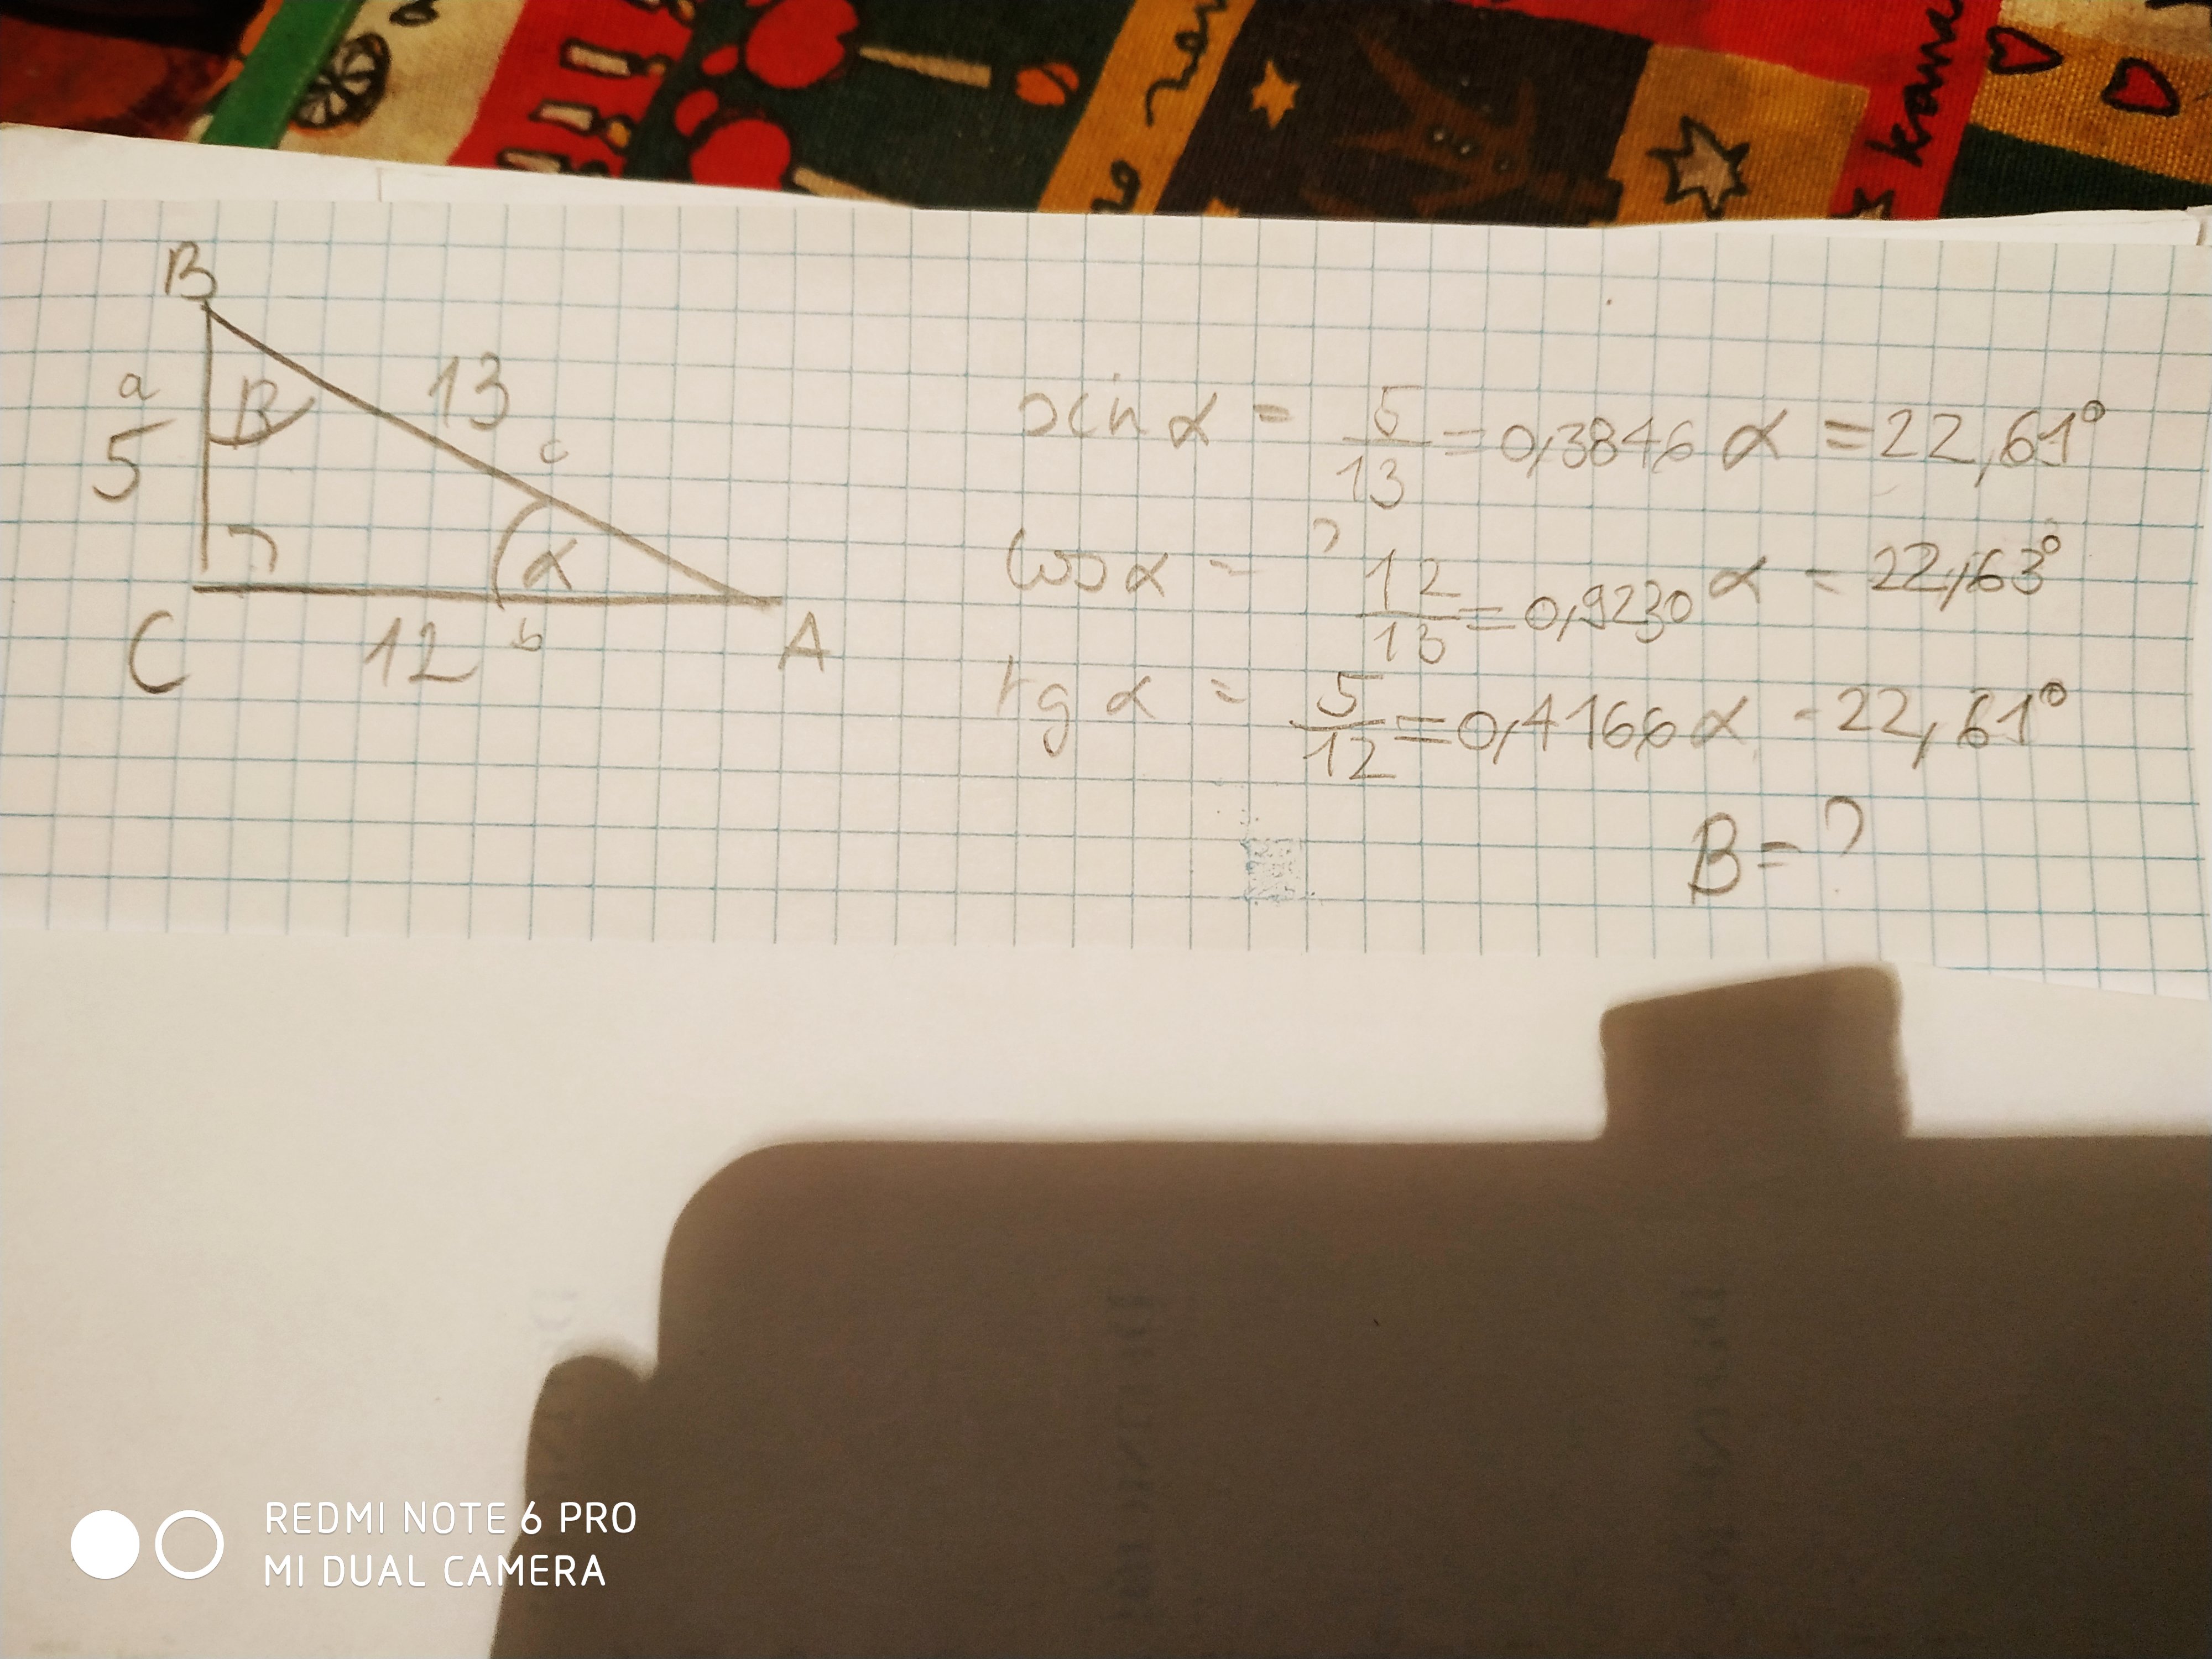 B
a
B
13
5
c
α
C
12
b
A
sin α = 5/13 = 0,3846 α = 22,61°
cos α = 12/13 = 0,9230 α = 22,63°
tg α = 5/12 = 0,4166 α = 22,61°
B = ?
REDMI NOTE 6 PRO
MI DUAL CAMERA